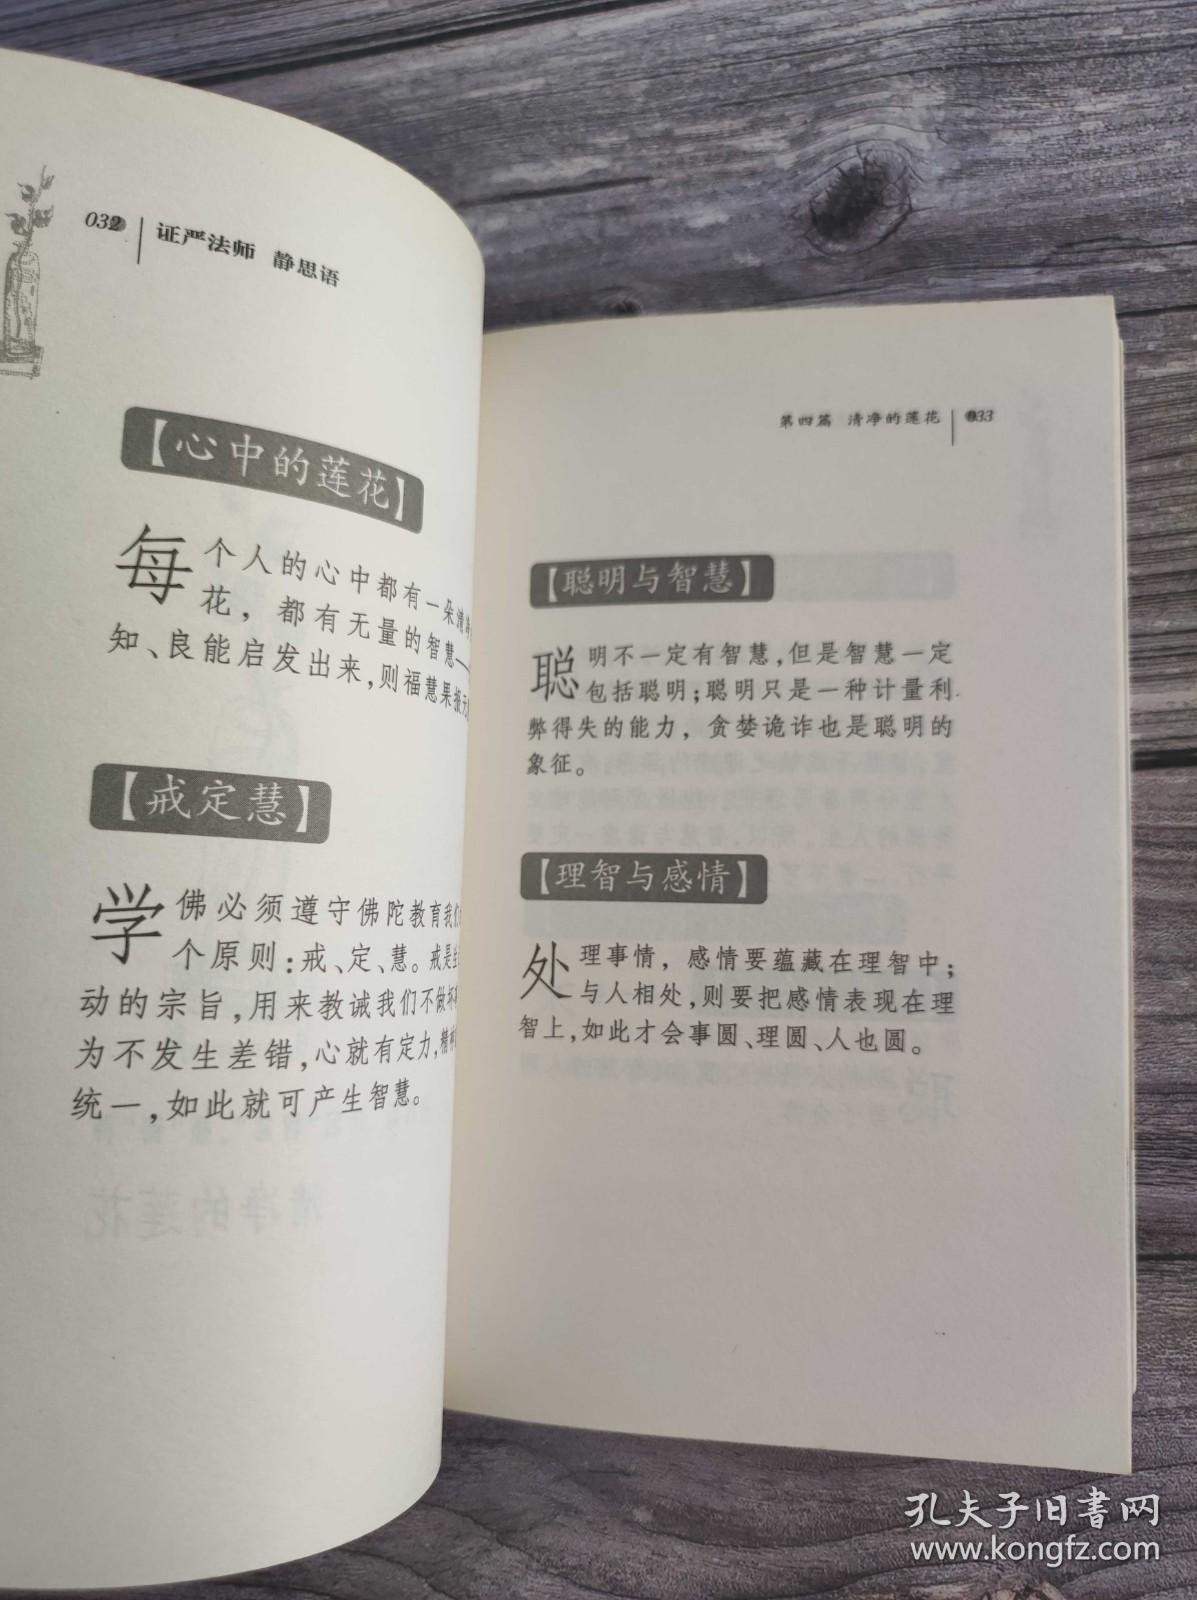 032 证严法师 静思语
【心中的莲花】
每个人的心中都有一朵清
花，都有无量的智慧—
知、良能启发出来，则福慧果报
【戒定慧】
学佛必须遵守佛陀教育我们
个原则：戒、定、慧。戒是
动的宗旨，用来教诫我们不做坏
为不发生差错，心就有定力，精
统一，如此就可产生智慧。
第四篇 清净的莲花 033
【聪明与智慧】
聪明不一定有智慧，但是智慧一定
包括聪明；聪明只是一种计量利
弊得失的能力，贪婪诡诈也是聪明的
象征。
【理智与感情】
处理事情，感情要蕴藏在理智中；
与人相处，则要把感情表现在理
智上，如此才会事圆、理圆、人也圆。
清净的莲花
孔夫子旧书网
www.kongfz.com